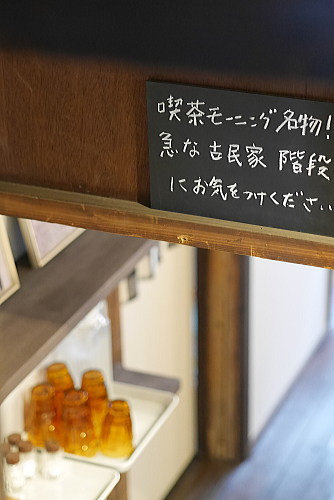 喫茶モーニング名物!
急な古民家 階段
にお気をつけください